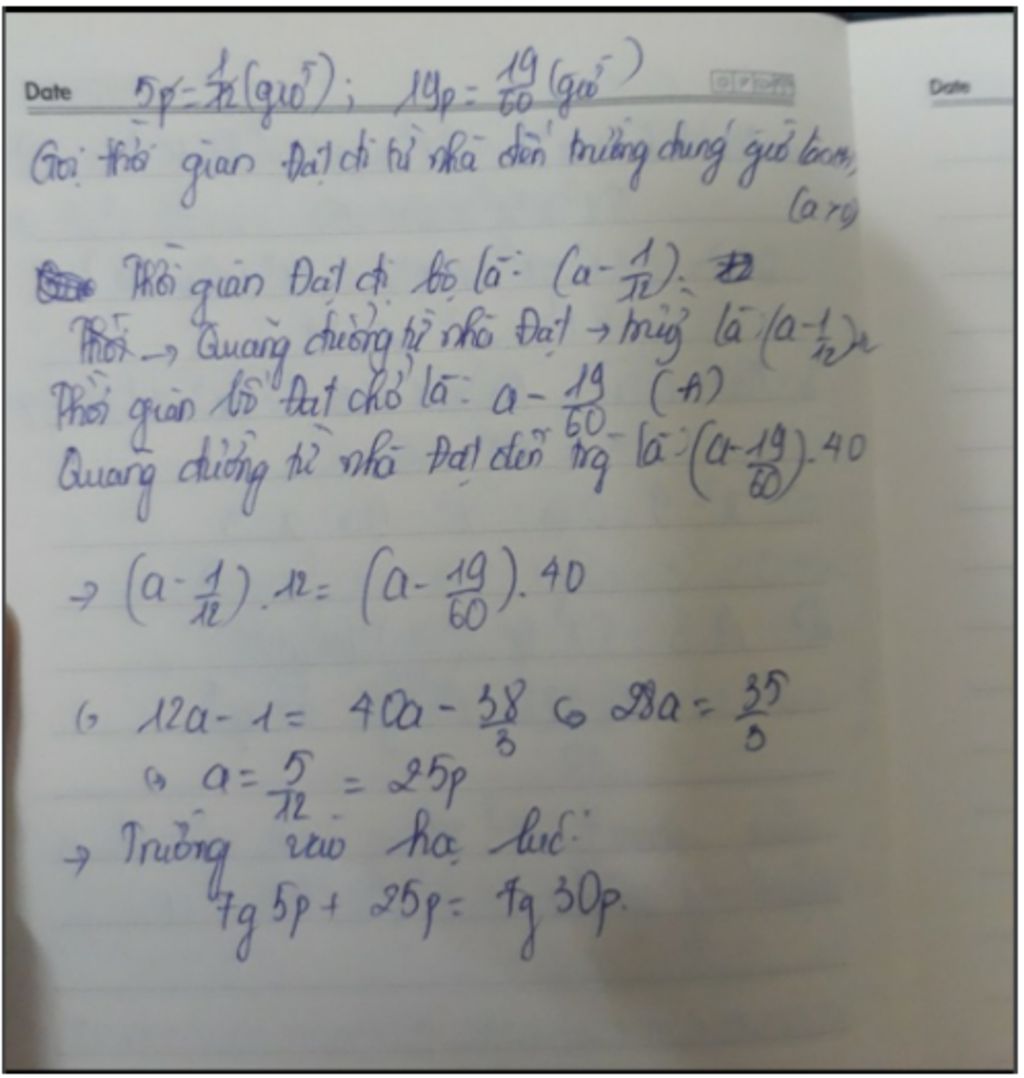 Date 5p = 1/12 (giờ); 19p = 19/60 (giờ) Date
Gọi thời gian Đạt đi từ nhà đến trường đúng giờ là
(a>0)
Thời gian Đạt đi bộ là: (a - 1/12).
Thời → Quãng đường từ nhà Đạt → trường là: (a - 1/12)
Thời gian bố Đạt chở là: a - 19/60 (h)
Quãng đường từ nhà Đạt đến trg là: (a - 19/60).40
→ (a - 1/12).12 = (a - 19/60).40
(=) 12a - 1 = 40a - 38/3 (=) 28a = 35/3
(=) a = 5/12 = 25p
→ Trường vào học lúc:
7g 5p + 25p = 7g 30p.